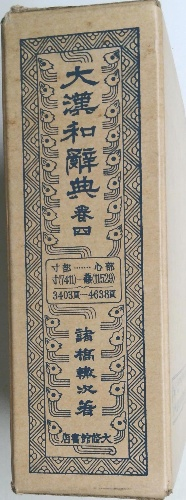 大漢和辭典 卷四
寸部……心部
寸(7411)—(11529)
3403頁—4638頁
諸橋轍次著
大修館書店